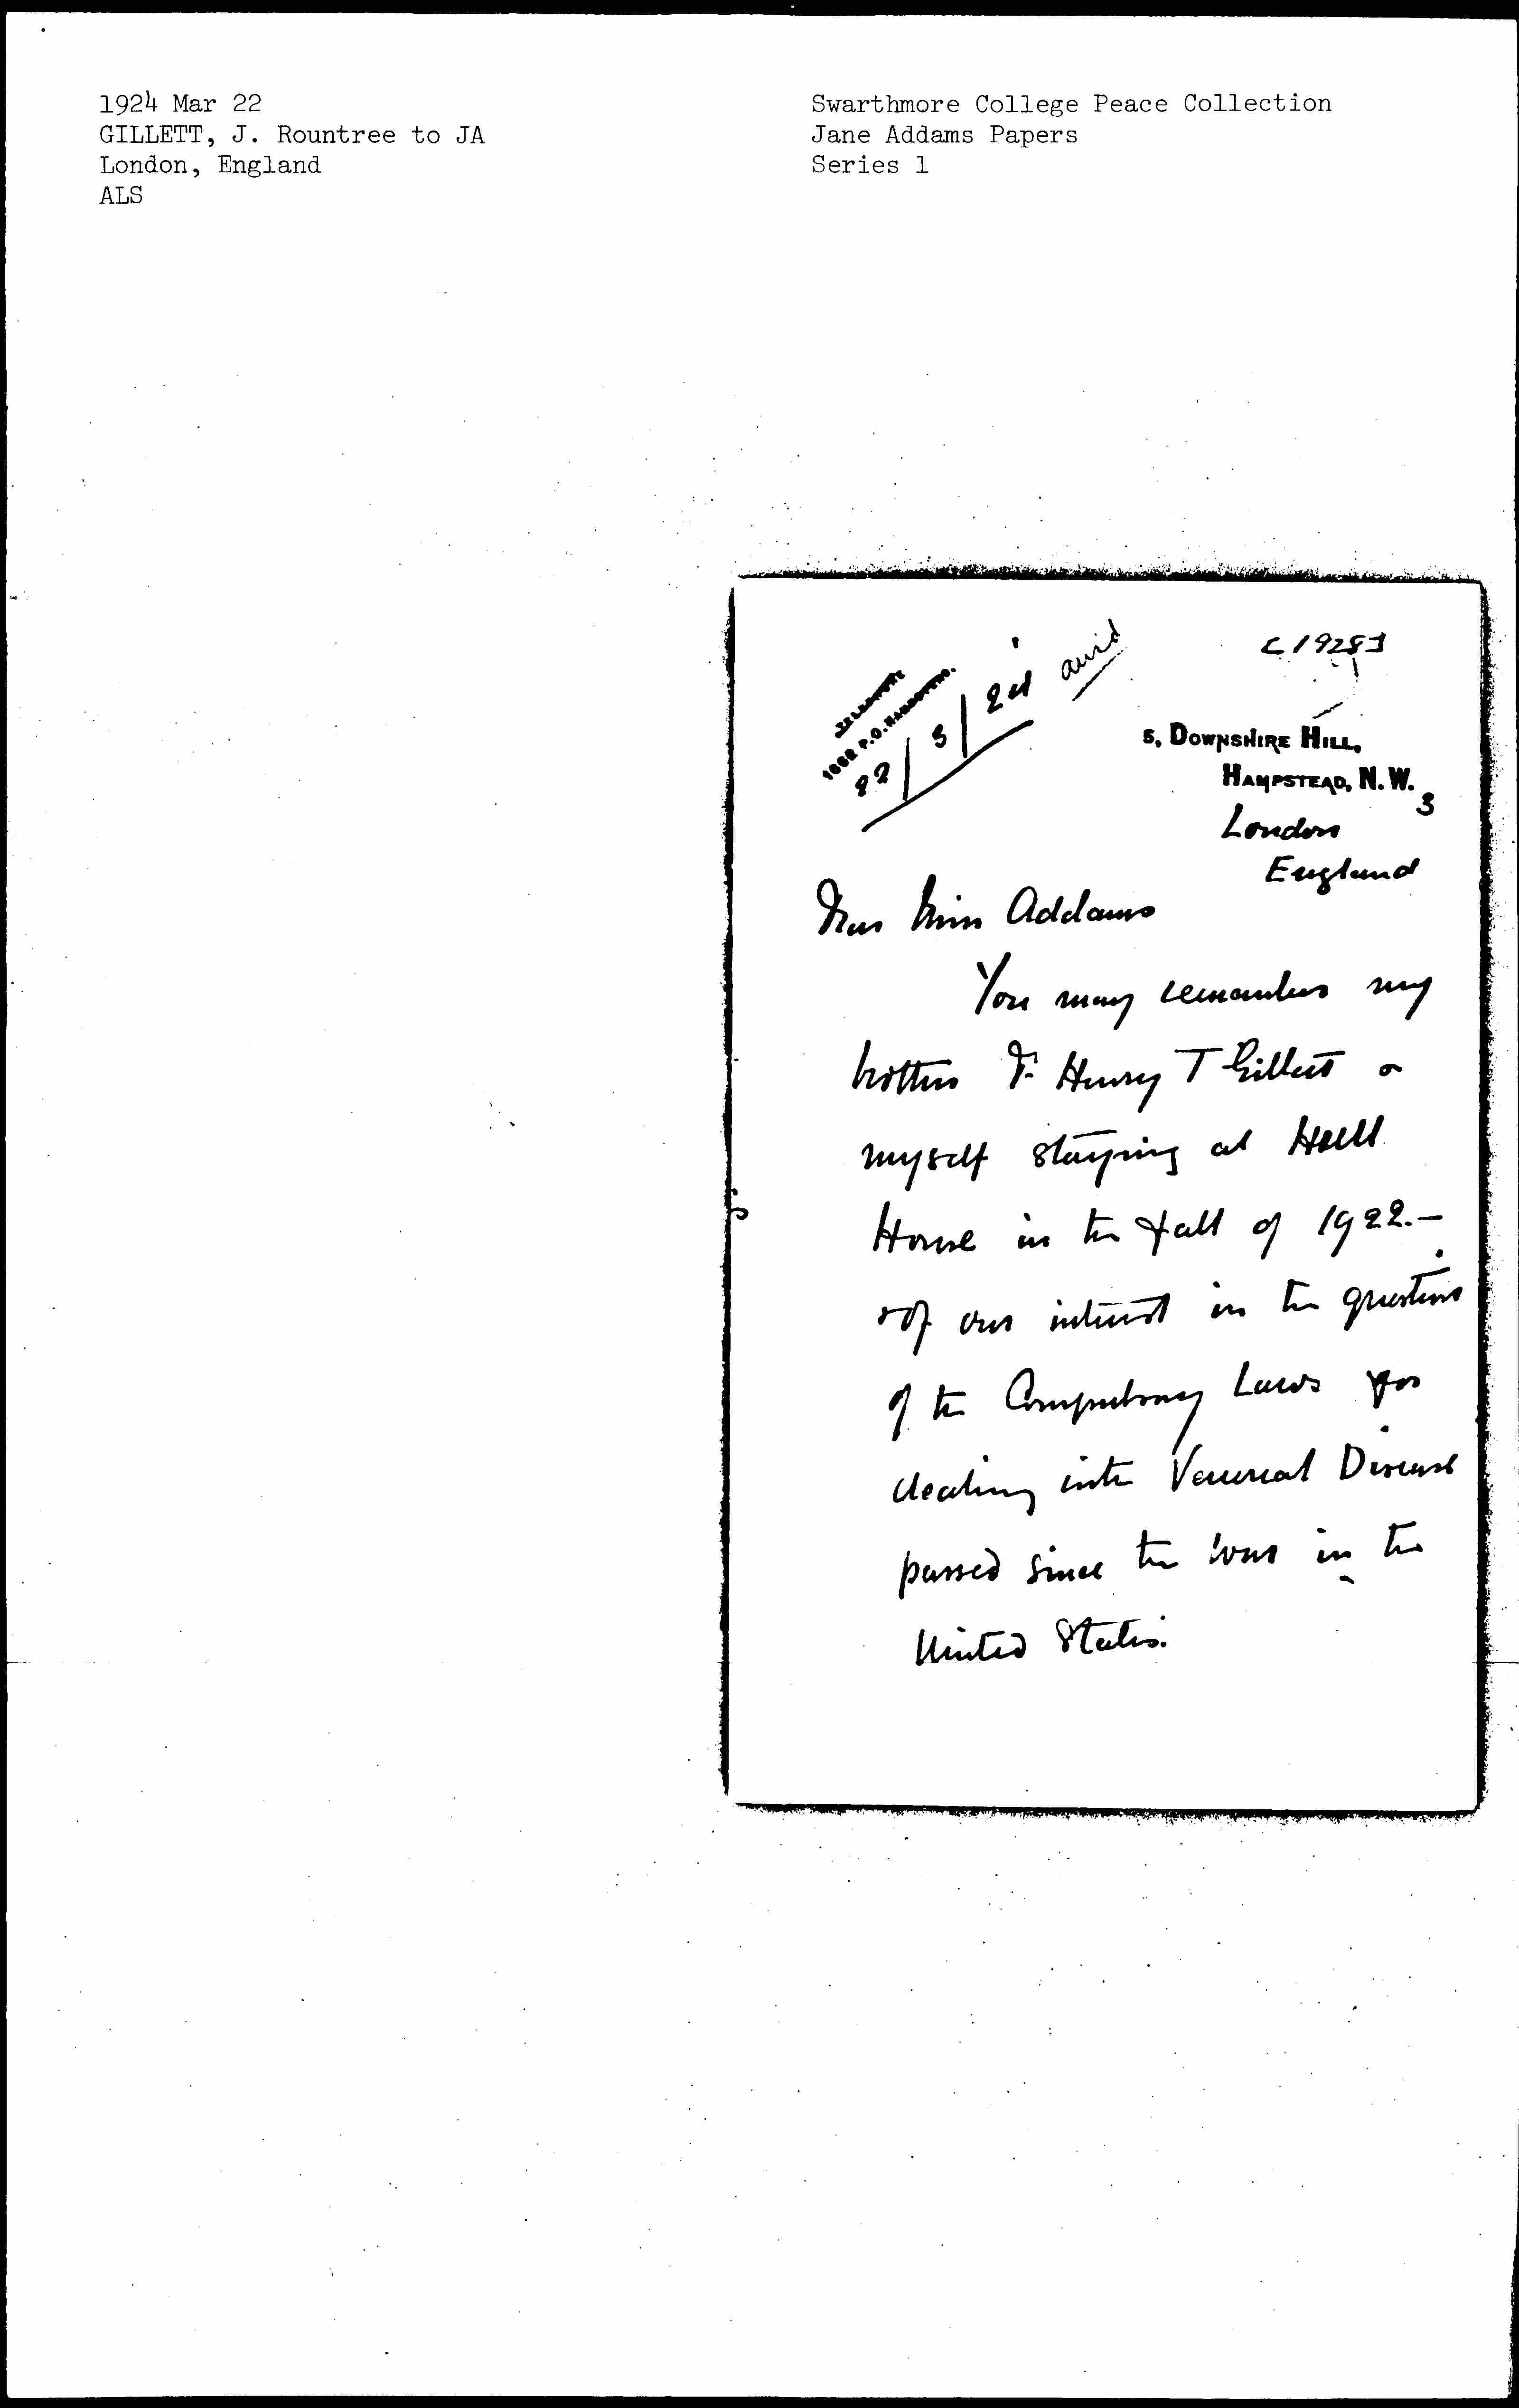 1924 Mar 22
GILLETT, J. Rountree to JA
London, England
ALS
Swarthmore College Peace Collection
Jane Addams Papers
Series 1
[1928]
TELEPHONE
1682 P.O. HAMPSTEAD.
22/3/24 
5, DOWNSHIRE HILL,
HAMPSTEAD, N.W.3
London
England
Dear Miss Addams
You may remember my
brother Dr Henry T Gillett &
myself staying at Hull
House in the Fall of 1922.—
& of our interest in the questions
of the Compulsory Laws for
dealing with Venereal Disease
passed since the war in the
United States.